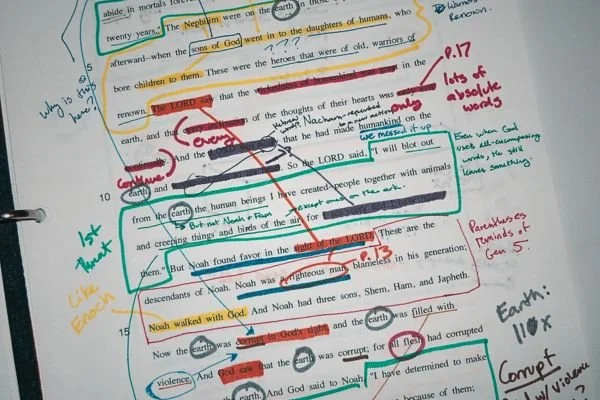 abide in mortals forever
twenty years." The Nephilim were on the earth in those
afterward—when the sons of God went in to the daughters of humans, who
? ? ?
bore children to them. These were the heroes that were of old, warriors of
renown. The LORD saw that the wickedness of humankind was great in the
earth, and that every of the thoughts of their hearts was only
every
continually. And the that he had made humankind on the
we messed it up
10 earth and . So the LORD said, "I will blot out
from the earth the human beings I have created–people together with animals
But not Noah + Fam
except ones on the ark.
and creeping things and birds of the air for
them." But Noah found favor in the sight of the LORD. These are the
P.13
descendants of Noah. Noah was a righteous man, blameless in his generation;
Noah walked with God. And Noah had three sons, Shem, Ham, and Japheth.
15
Now the earth was corrupt in God's sight, and the earth was filled with
violence. And God saw that the earth was corrupt; for all flesh had corrupted
earth. And God said to Noah, "I have determined to make
because of them;
5
why is this
here?
continue
1st
Threat
Like
Enoch
Renown.
P.17
lots of
absolute
words
Even when God
uses all-encompassing
words, He still
leaves something.
Parentheses
reminds of
Gen 5.
Earth:
Corrupt
w/ violence
?